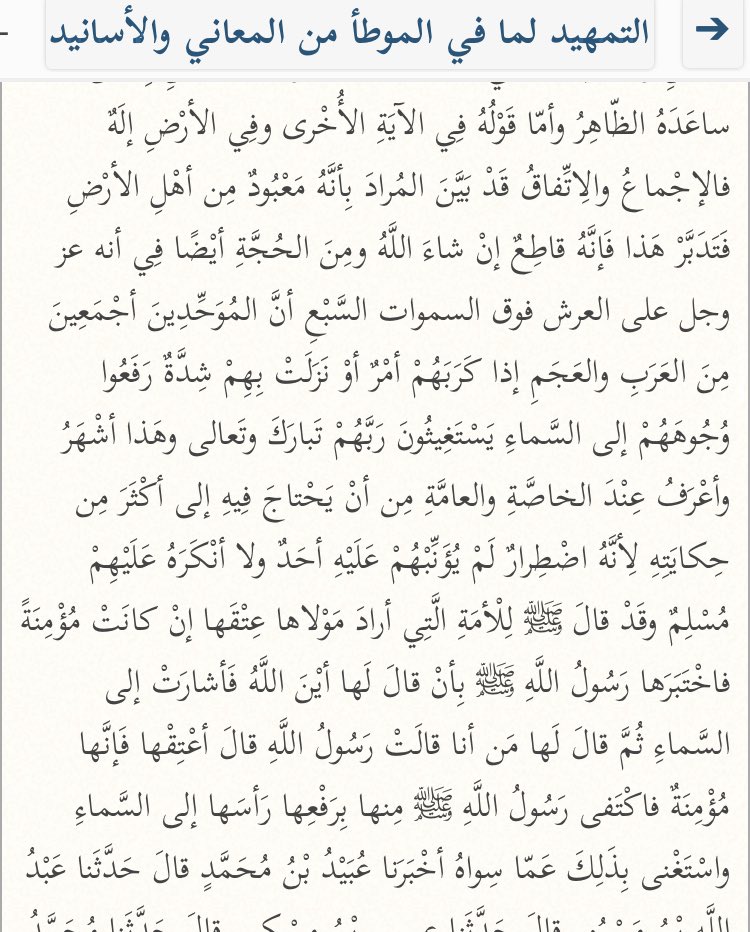 التمهيد لما في الموطأ من المعاني والأسانيد
ساعَدَهُ الظّاهِرُ وأمّا قَوْلُهُ فِي الآيَةِ الأُخْرى وفِي الأرْضِ إلَهٌ
فالإجْماعُ والِاتِّفاقُ قَدْ بَيَّنَ المُرادَ بِأنَّهُ مَعْبُودٌ مِن أهْلِ الأرْضِ
فَتَدَبَّرْ هَذا فَإنَّهُ قاطِعٌ إنْ شاءَ اللَّهُ ومِنَ الحُجَّةِ أيْضًا فِي أنه عز
وجل على العرش فوق السموات السَّبْعِ أنَّ المُوَحِّدِينَ أجْمَعِينَ
مِنَ العَرَبِ والعَجَمِ إذا كَرَبَهُمْ أمْرٌ أوْ نَزَلَتْ بِهِمْ شِدَّةٌ رَفَعُوا
وُجُوهَهُمْ إلى السَّماءِ يَسْتَغِيثُونَ رَبَّهُمْ تَبارَكَ وتَعالى وهَذا أشْهَرُ
وأعْرَفُ عِنْدَ الخاصَّةِ والعامَّةِ مِن أنْ يَحْتاجَ فِيهِ إلى أكْثَرَ مِن
حِكايَتِهِ لِأنَّهُ اضْطِرارٌ لَمْ يُؤَنِّبْهُمْ عَلَيْهِ أحَدٌ ولا أنْكَرَهُ عَلَيْهِمْ
مُسْلِمٌ وقَدْ قالَ ﷺ لِلْأمَةِ الَّتِي أرادَ مَوْلاها عِتْقَها إنْ كانَتْ مُؤْمِنَةً
فاخْتَبَرَها رَسُولُ اللَّهِ ﷺ بِأنْ قالَ لَها أيْنَ اللَّهُ فَأشارَتْ إلى
السَّماءِ ثُمَّ قالَ لَها مَن أنا قالَتْ رَسُولُ اللَّهِ قالَ أعْتِقْها فَإنَّها
مُؤْمِنَةٌ فاكْتَفى رَسُولُ اللَّهِ ﷺ مِنها بِرَفْعِها رَأسَها إلى السَّماءِ
واسْتَغْنى بِذَلِكَ عَمّا سِواهُ أخْبَرَنا عُبَيْدُ بْنُ مُحَمَّدٍ قالَ حَدَّثَنا عَبْدُ